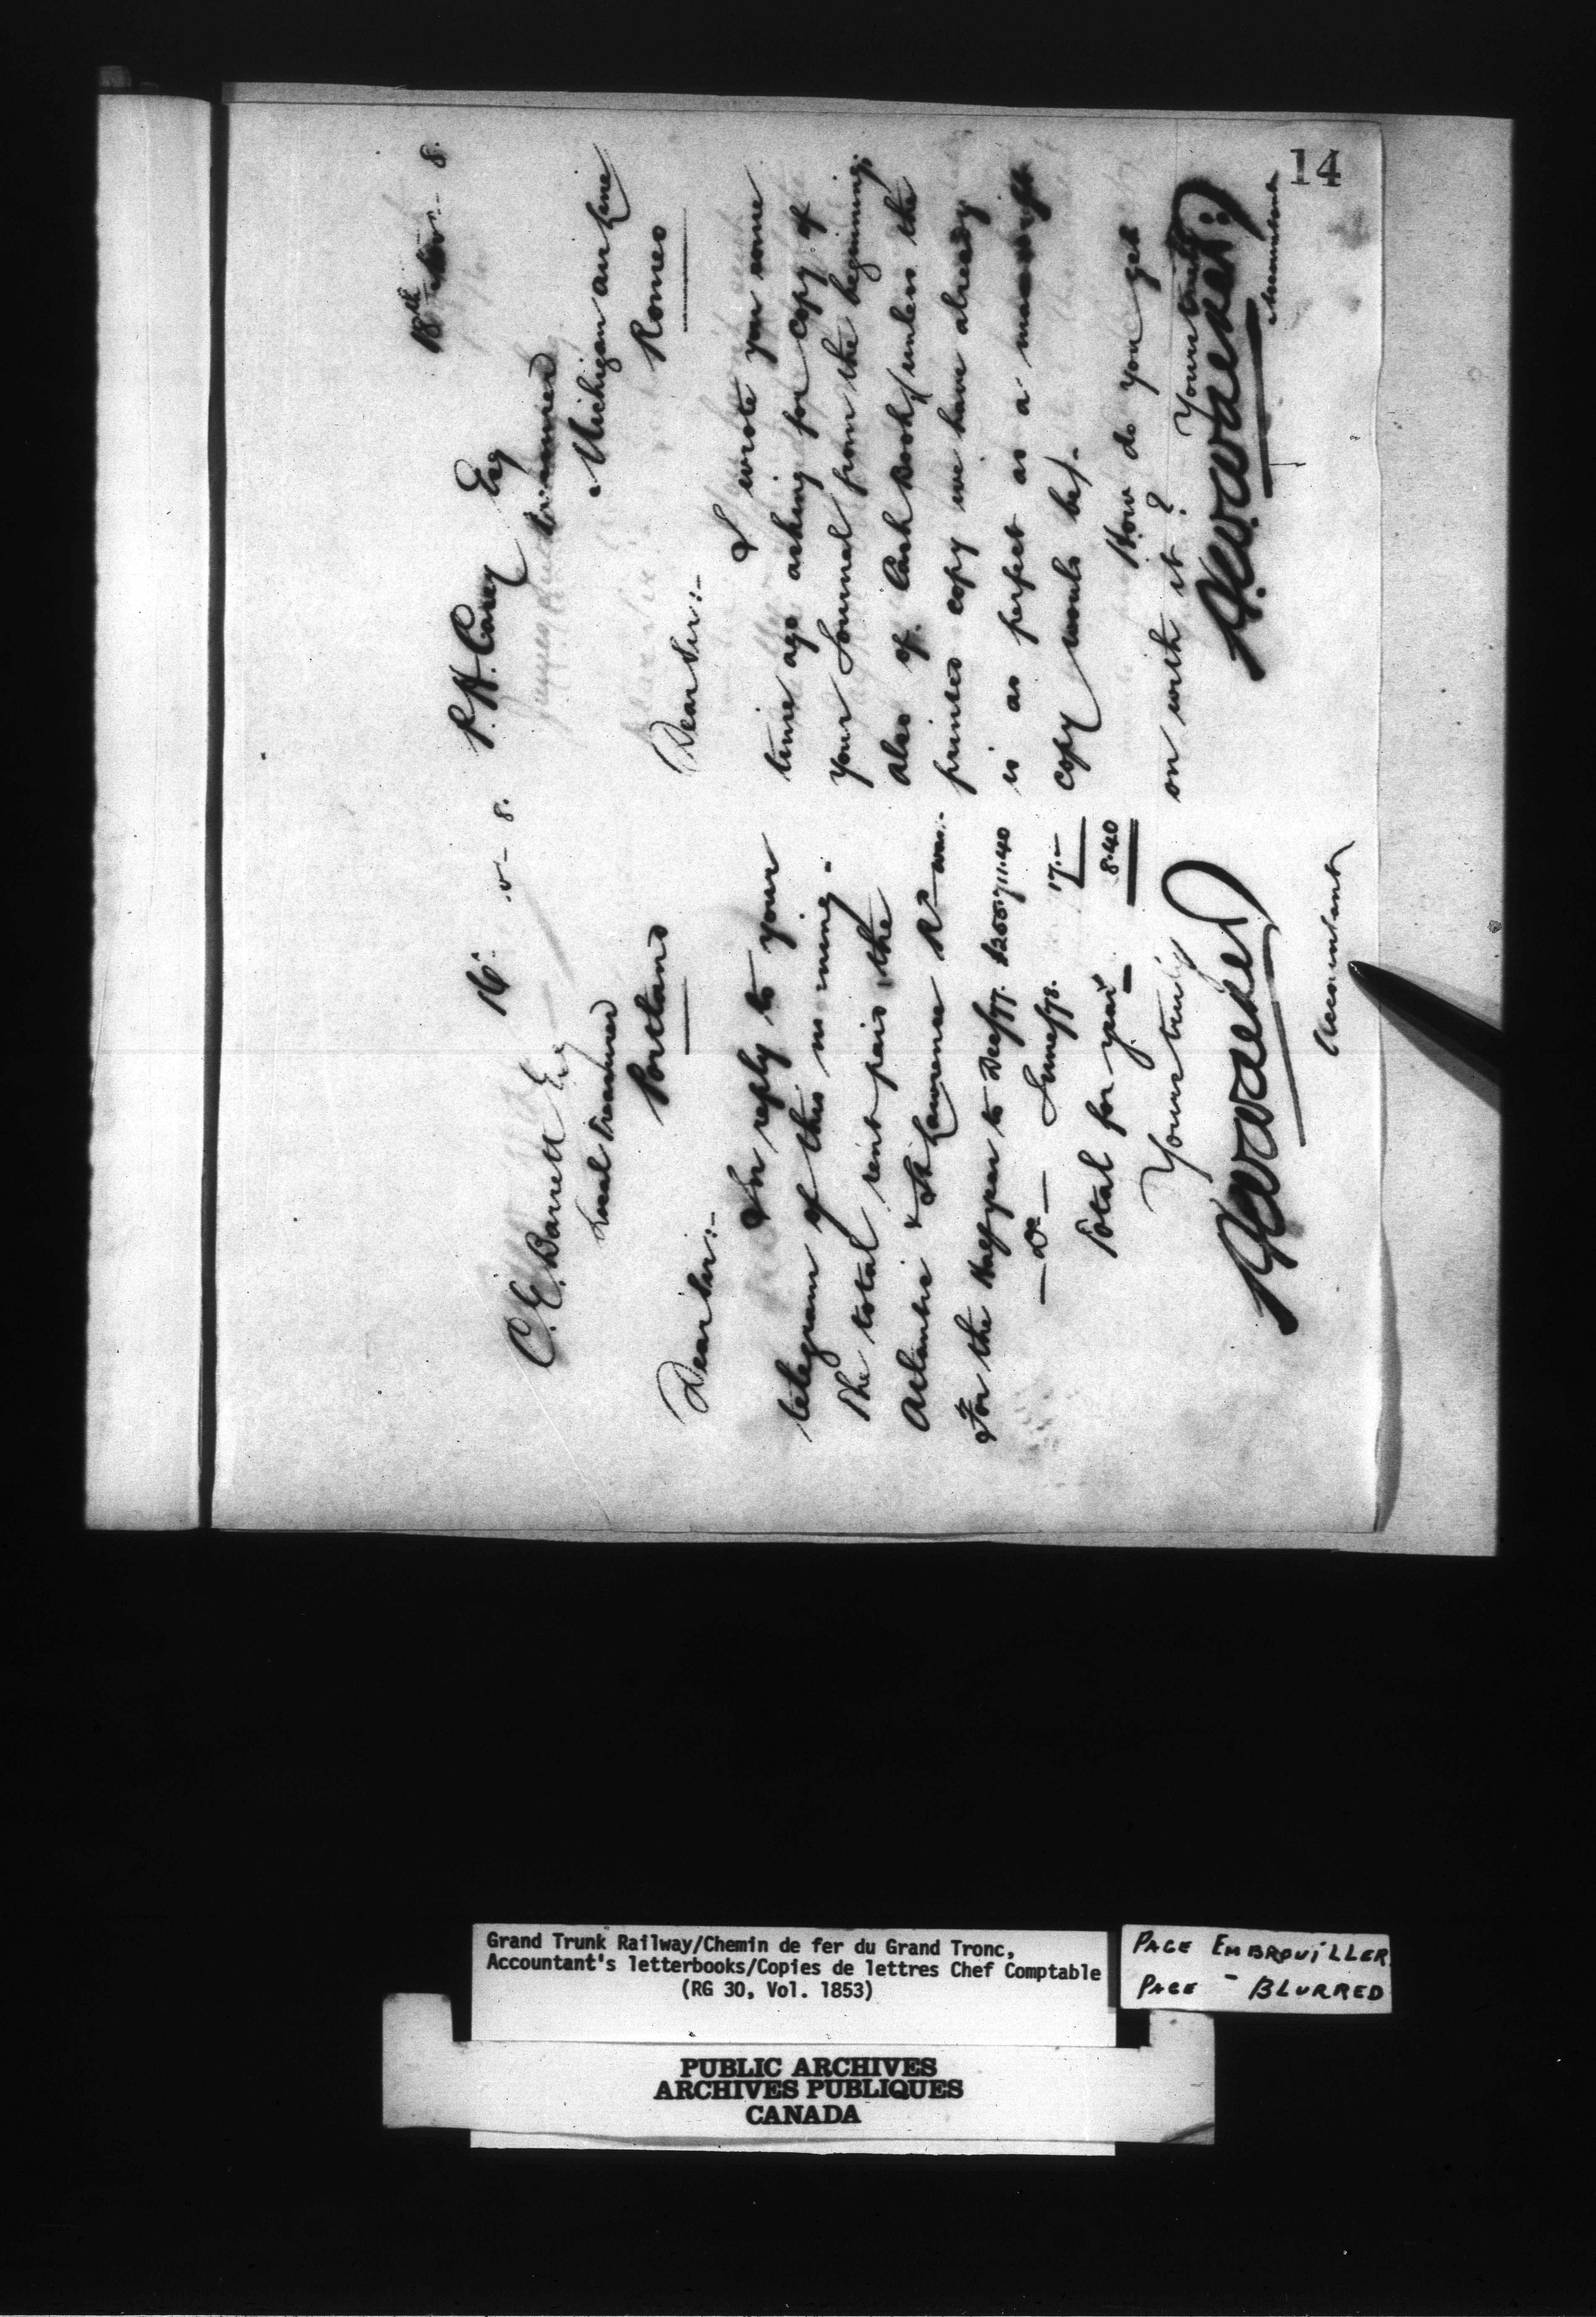 14
16
C. E. Barrett Esq
Local Treasurer
Portland
Dear Sir:-
In reply to your
telegram of this morning.-
The total rent paid the
Atlantic & St Lawrence Rd was:-
For the Half year to Dec/77.
— Do — June/78.
Total for year
Yours truly
Accountant
18th Nov - 8.
P. H. Carey Esq
Michigan Air Line
Romeo
Dear Sir:-
I wrote you some
time ago asking for copy of
your Journal from the beginning;
also of Cash Book (unless the
printed copy we have already
is as perfect as a
copy would be).-
How do you get
on with it?
Yours truly
Accountant
Grand Trunk Railway/Chemin de fer du Grand Tronc,
Accountant's letterbooks/Copies de lettres Chef Comptable
(RG 30, Vol. 1853)
PAGE EMBROUILLER
PAGE - BLURRED
PUBLIC ARCHIVES
ARCHIVES PUBLIQUES
CANADA